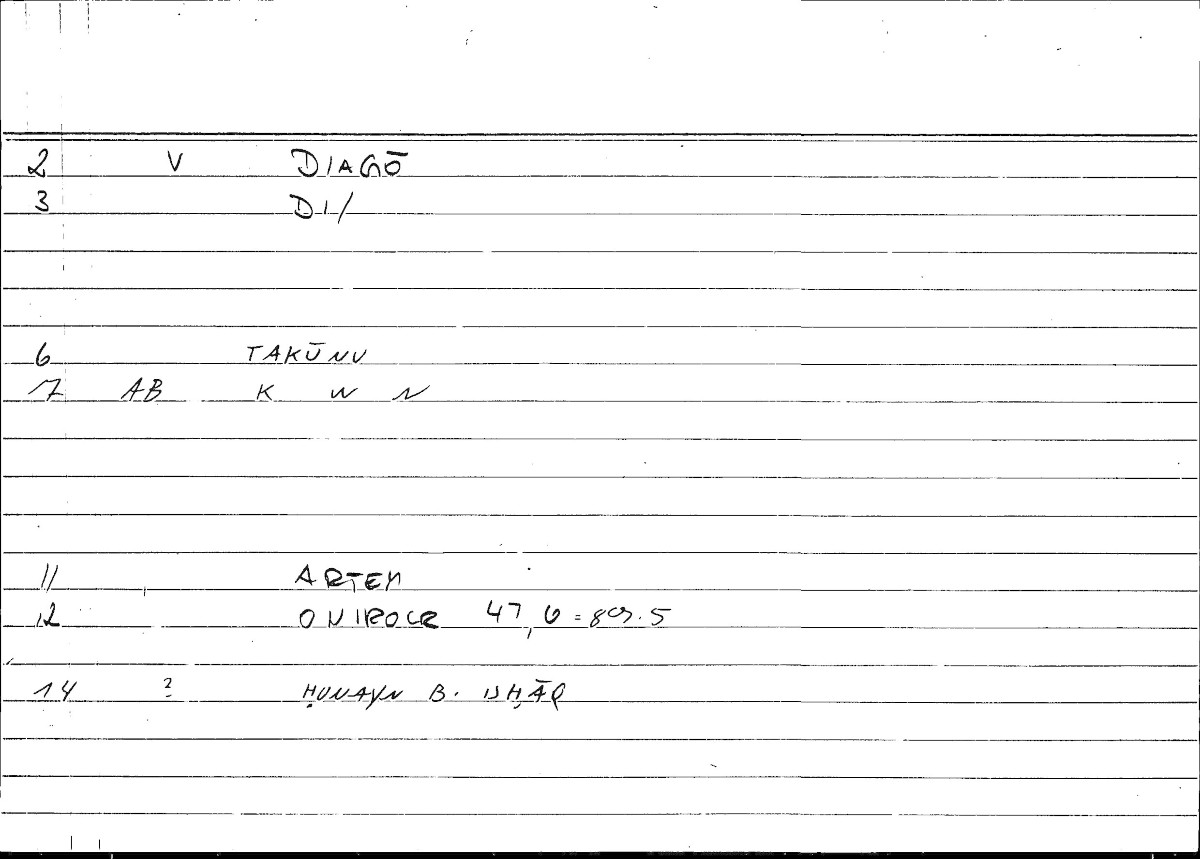 2 V DIAGŌ
3 DI/
6 TAKŪNU
7 AB K W N
11 ARTEM
12 ONIROCR 47,6 = 89.5
14 ? ḤUNAYN B. ISḤĀQ